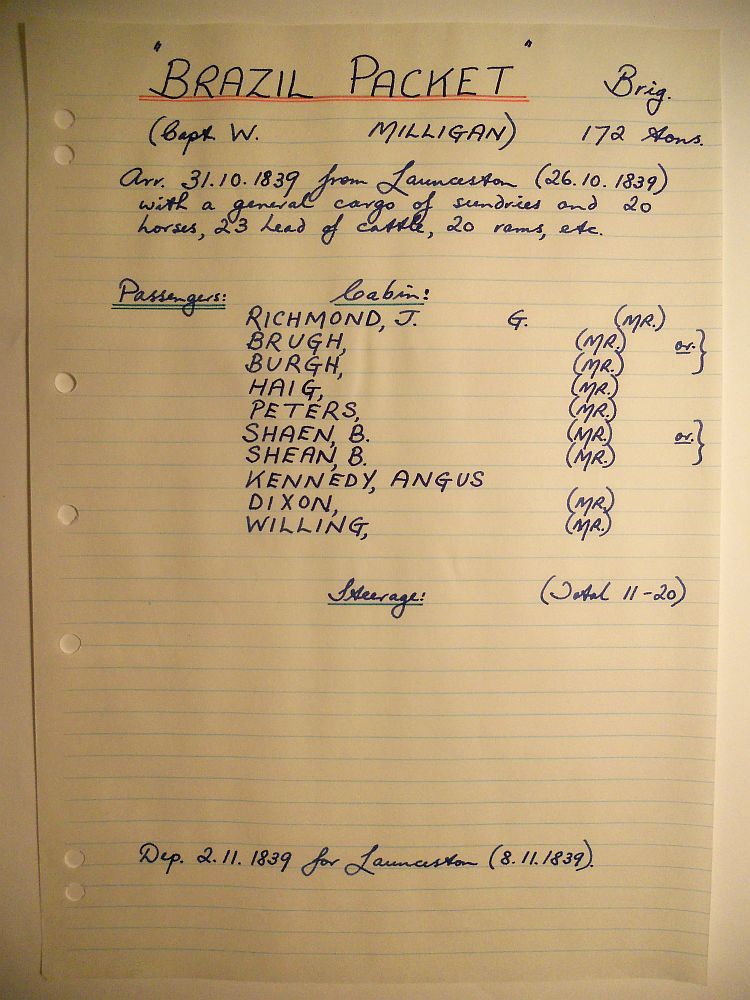 "BRAZIL PACKET" Brig.
(Capt W. MILLIGAN) 172 tons.
Arr. 31.10.1839 from Launceston (26.10.1839)
with a general cargo of sundries and 20
horses, 23 head of cattle, 20 rams, etc.
Passengers: Cabin:
RICHMOND, J. G. (MR.)
BRUGH, (MR.) or. }
BURGH, (MR.)
HAIG, (MR.)
PETERS, (MR.)
SHAEN, B. (MR.) or. }
SHEAN, B. (MR.)
KENNEDY, ANGUS
DIXON, (MR.)
WILLING, (MR.)
Steerage: (Total 11-20)
Dep. 2.11.1839 for Launceston (8.11.1839).